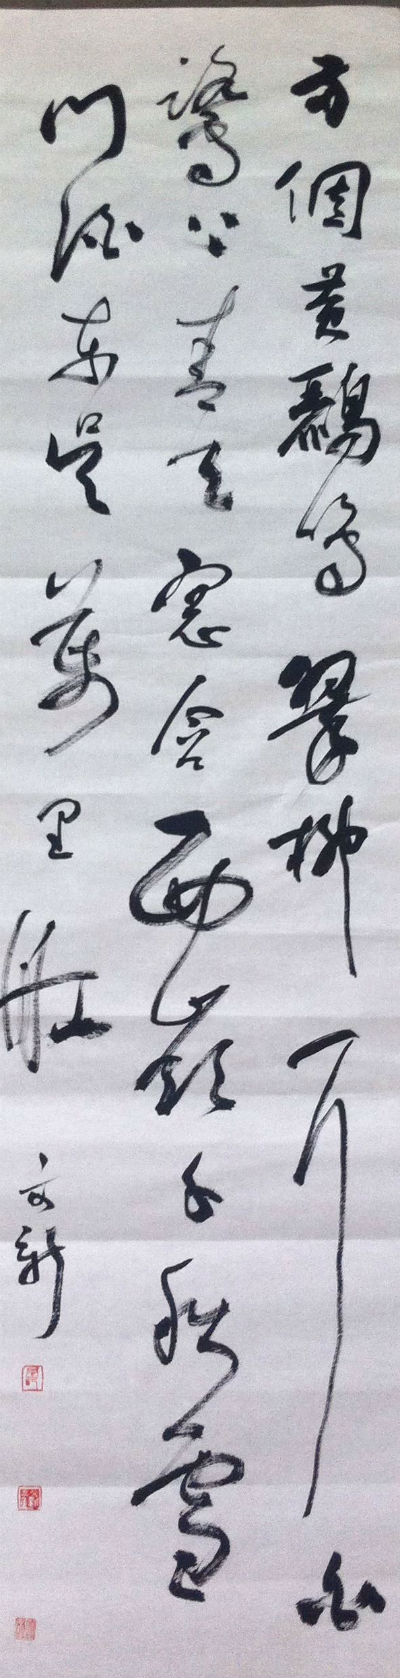 两個黃鸝鳴翠柳一行白
鷺上青天窗含西嶺千秋雪
門泊東吳萬里船